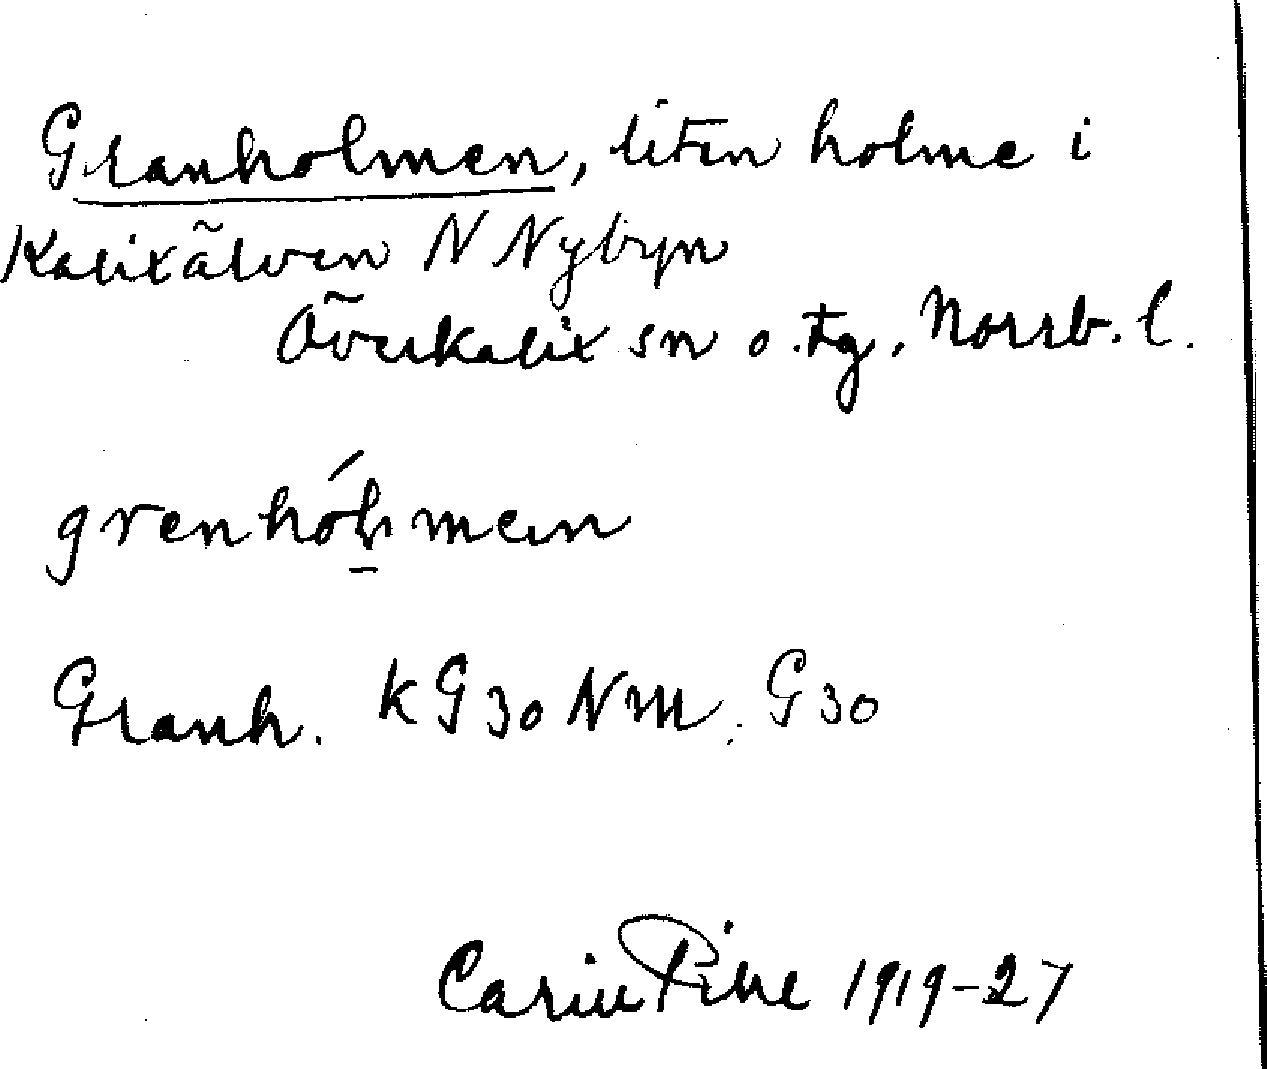 Granholmen, liten holme i
Kalixälven N Nybyn
Överkalix sn o. tg, Norrb. l.
grenhó̱lmen
Granh. KG30 NM. G30
Carin Pihl 1919-27